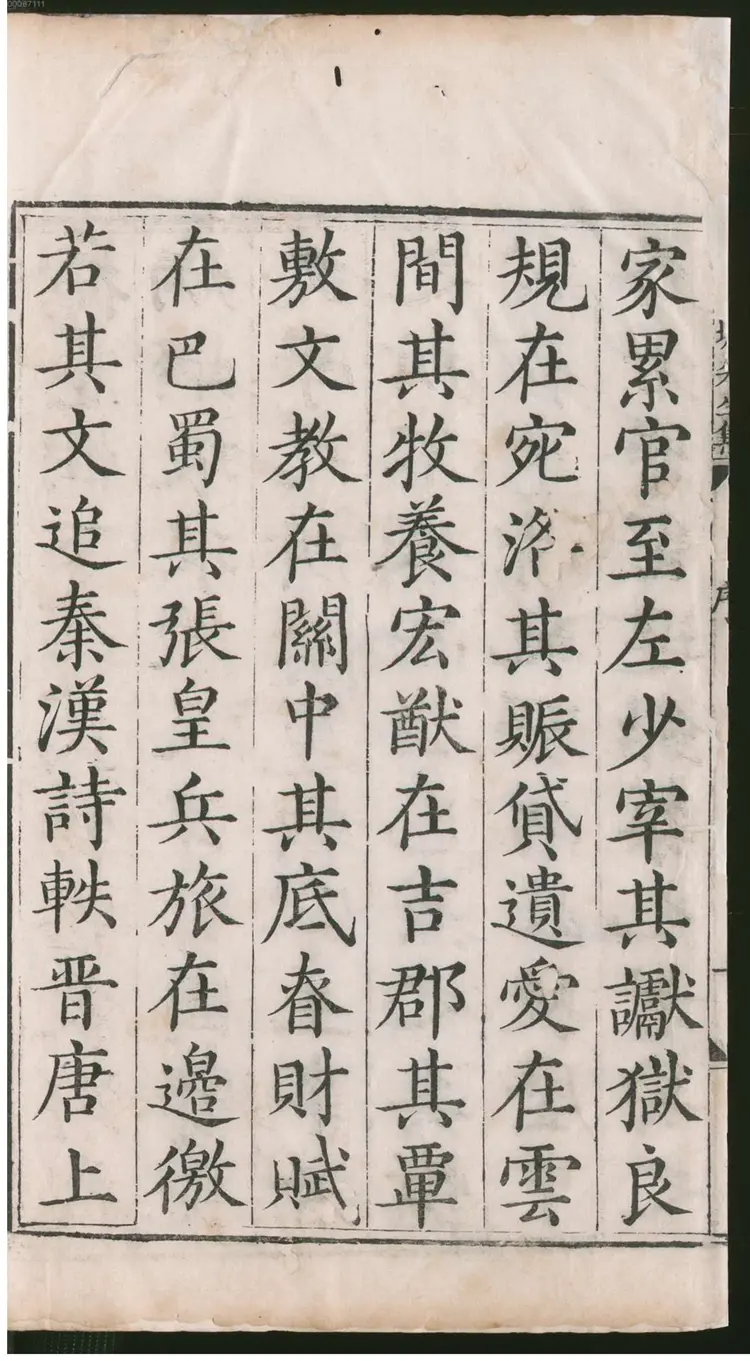 家累官至左少宰其讞獄良
規在宛洛其賑貸遺愛在雲
間其牧養宏猷在吉郡其覃
敷文教在關中其底眘財賦
在巴蜀其張皇兵旅在邊徼
若其文追秦漢詩軼晋唐上
序
00087111